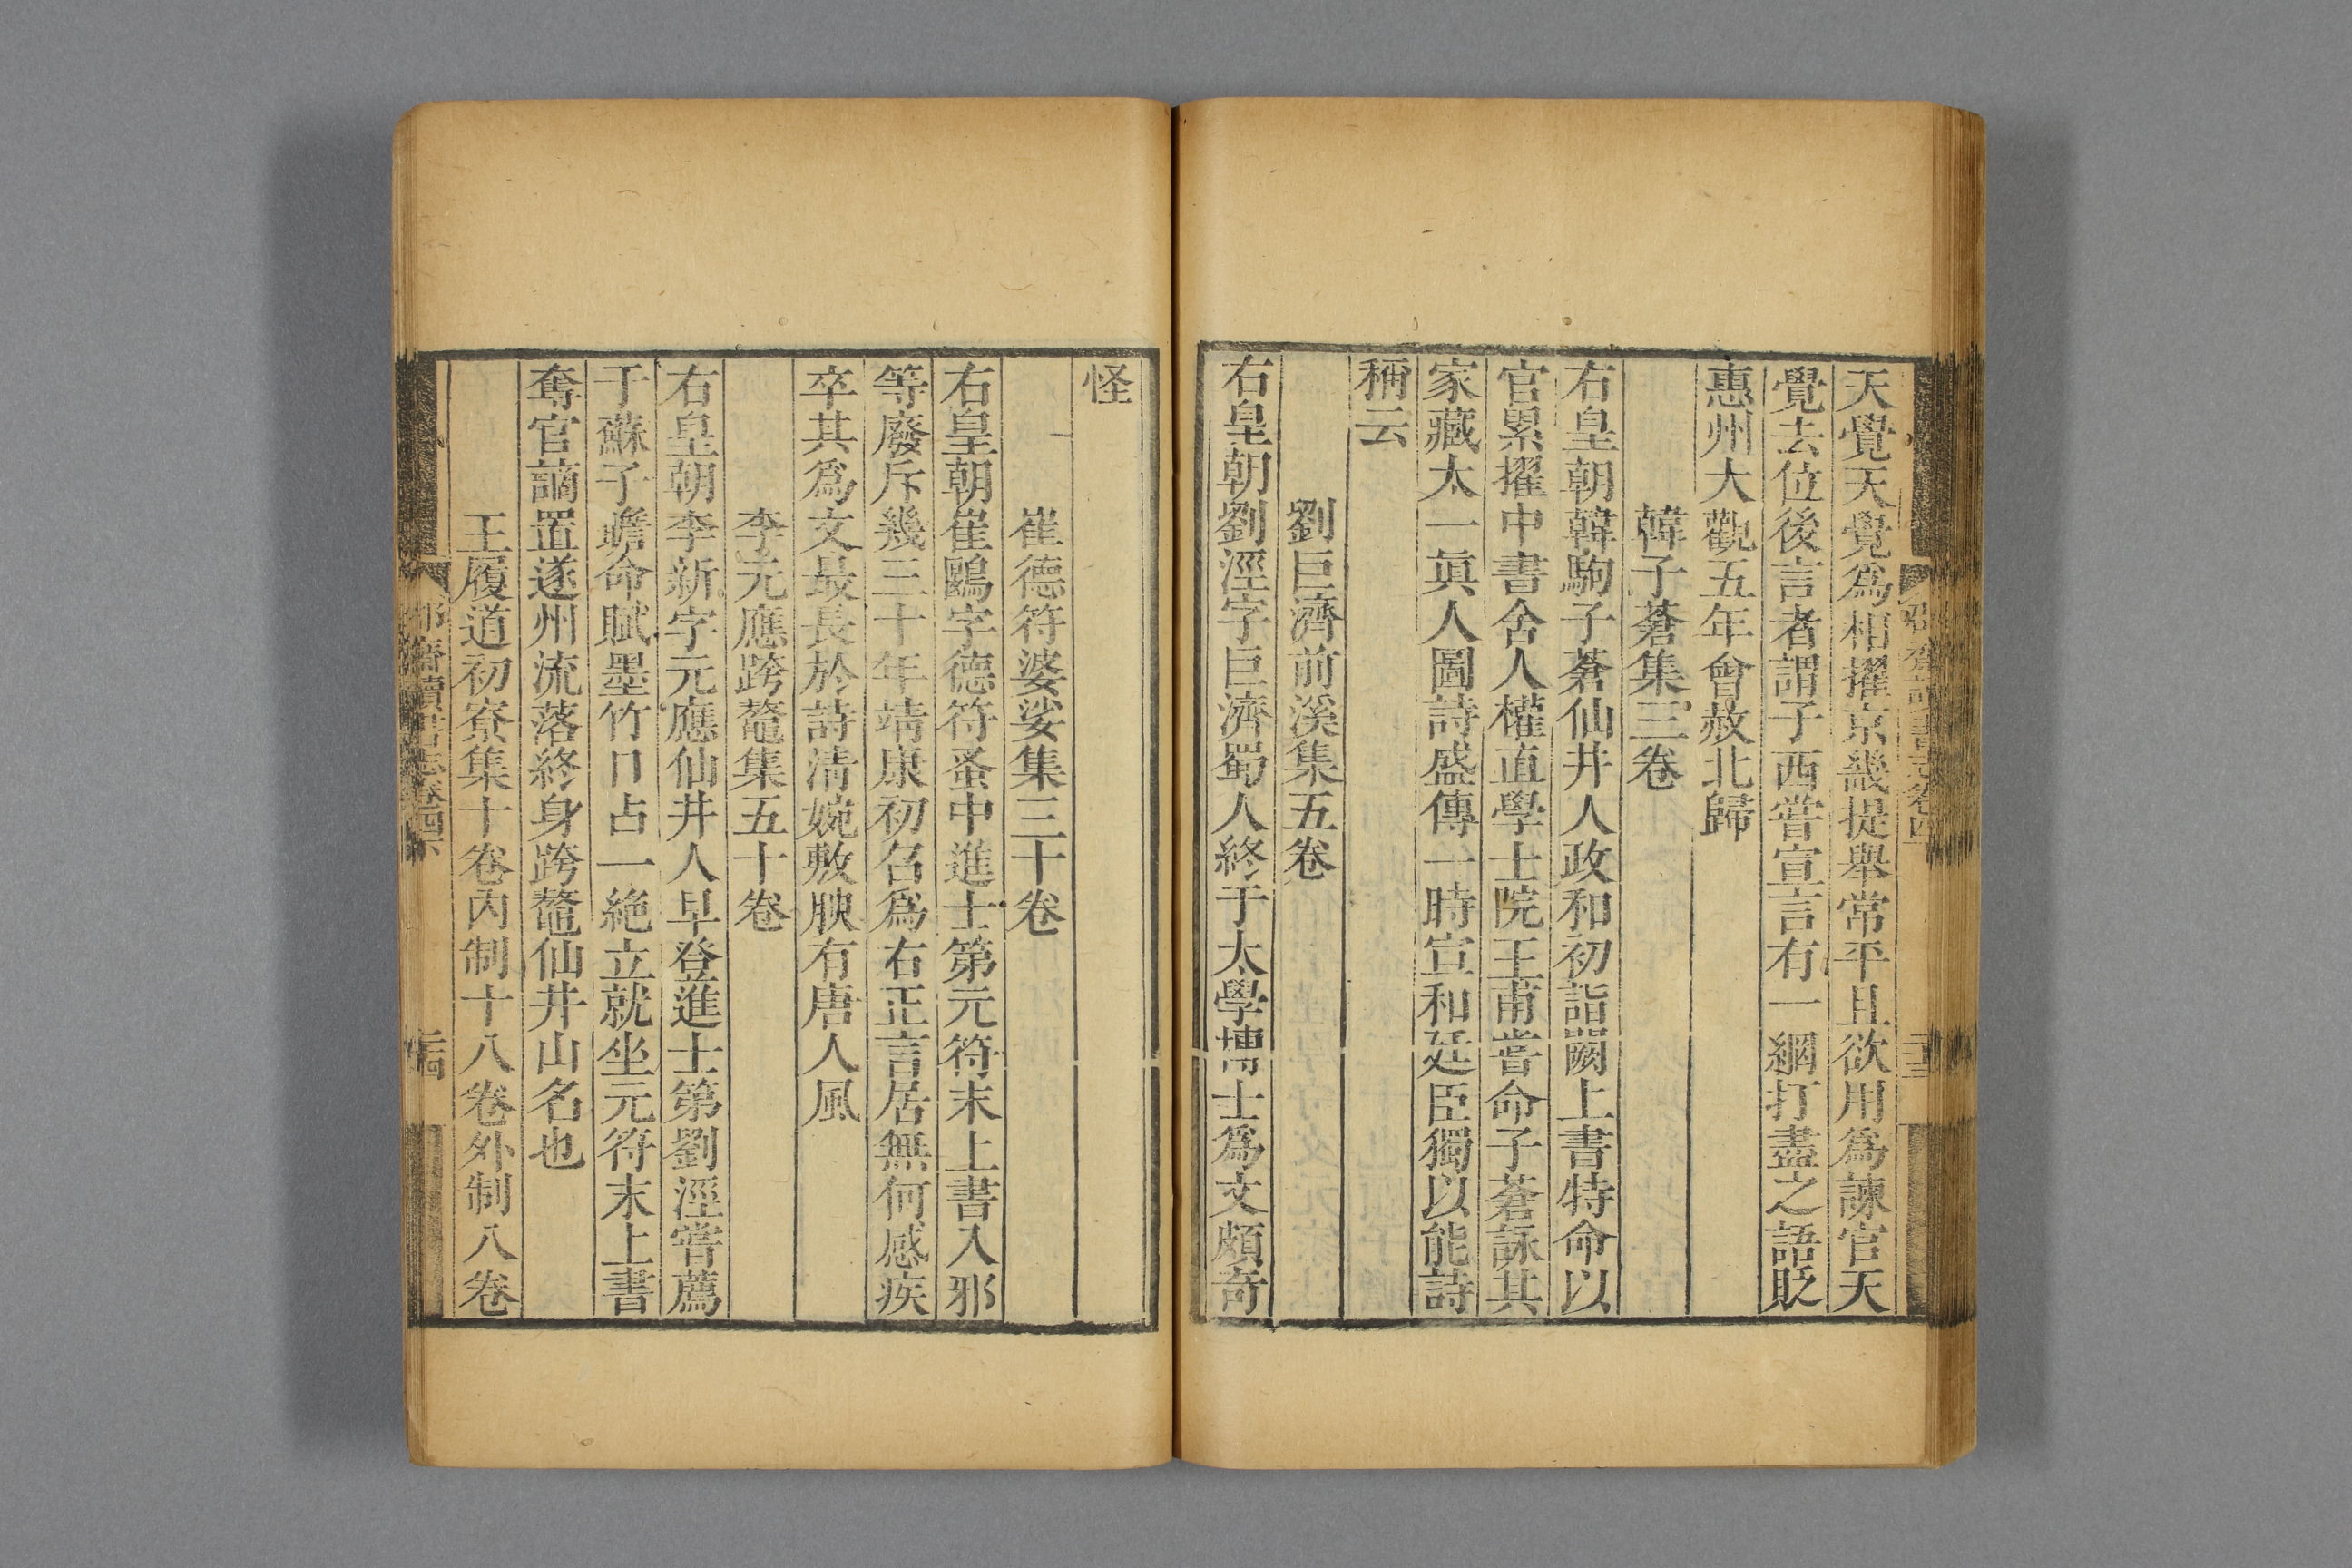 天覺天覺爲相擢京畿提舉常平且欲用爲諫官天
覺去位後言者謂子西嘗宣言有一網打盡之語貶
惠州大觀五年會赦北歸
韓子蒼集三卷
右皇朝韓駒子蒼仙井人政和初詣闕上書特命以
官累擢中書舍人權直學士院王甫嘗命子蒼詠其
家藏太一眞人圖詩盛傳一時宣和廷臣獨以能詩
稱云
劉巨濟前溪集五卷
右皇朝劉涇字巨濟蜀人終于太學博士爲文頗奇
怪
崔德符婆娑集三十卷
右皇朝崔鷗字德符蚤中進士第元符末上書入邪
等廢斥幾三十年靖康初召爲右正言居無何感疾
卒其爲文最長於詩清婉敷腴有唐人風
李元應跨鼇集五十卷
右皇朝李新字元應仙井人早登進士第劉涇嘗薦
于蘇子瞻命賦墨竹口占一絶立就坐元符末上書
奪官謫置遂州流落終身跨鼇仙井山名也
王履道初寮集十卷內制十八卷外制八卷